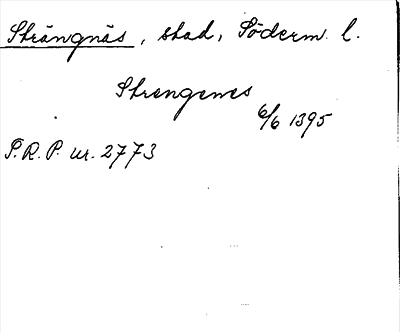 Strängnäs, stad, Söderm. l.
Strengenes
6/6 1395
S.R.P. nr. 2773